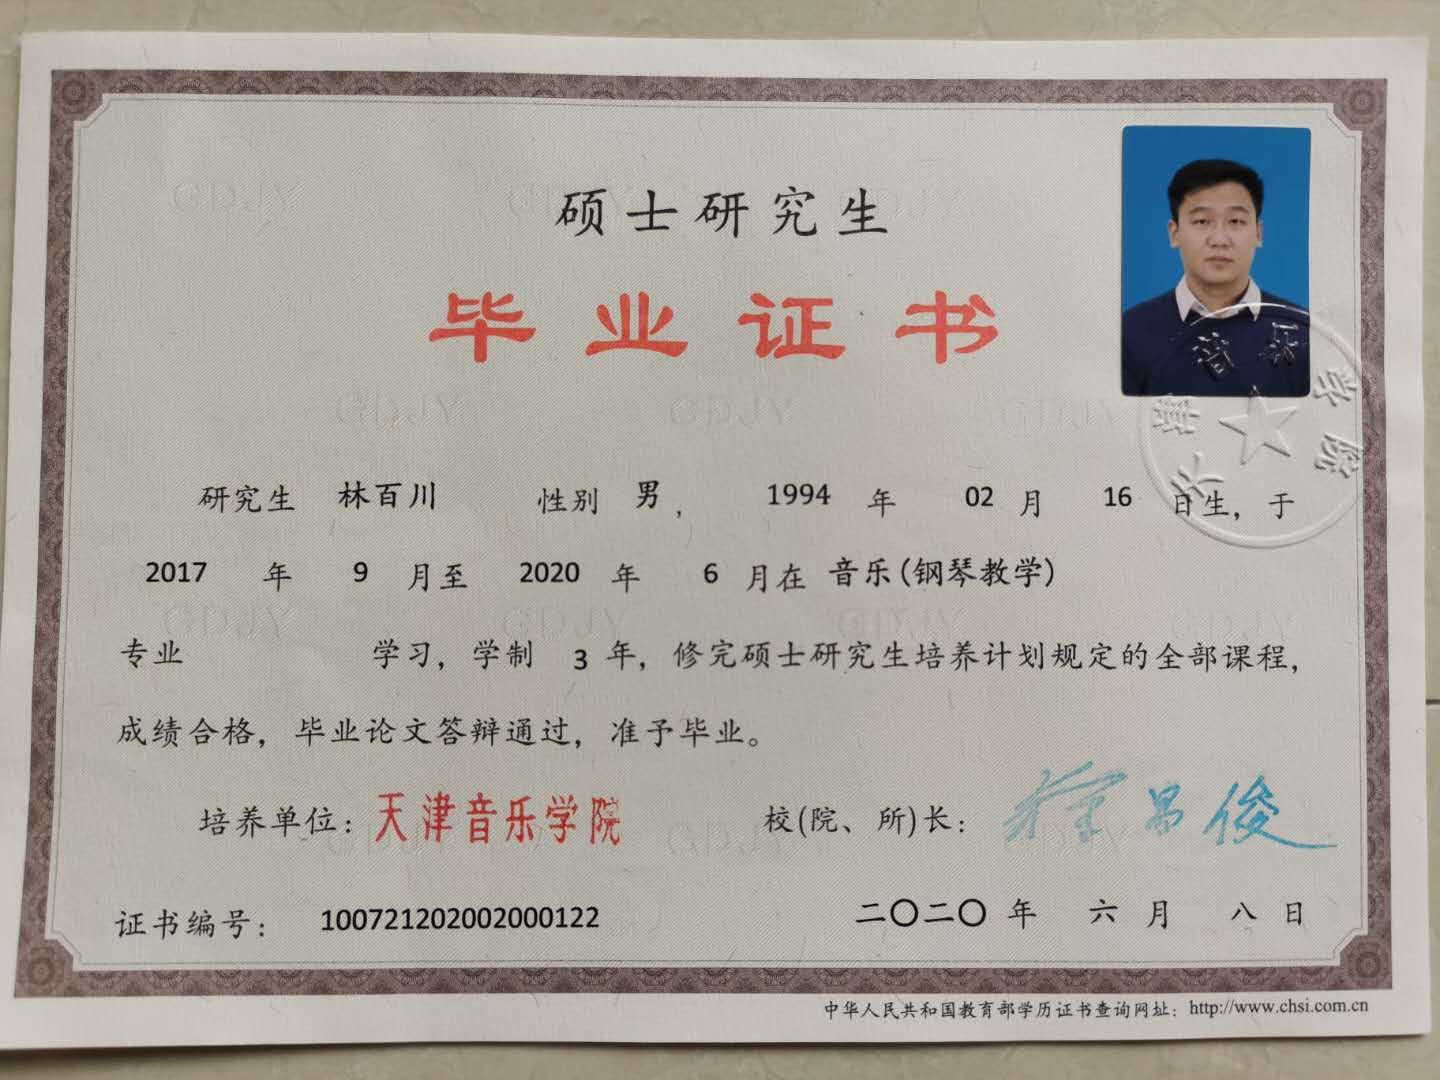 硕士研究生
毕业证书
研究生 林百川 性别 男， 1994 年 02 月 16 日生，于
2017 年 9 月至 2020 年 6 月在 音乐(钢琴教学)
专业 学习，学制 3 年，修完硕士研究生培养计划规定的全部课程，
成绩合格，毕业论文答辩通过，准予毕业。
培养单位：天津音乐学院 校(院、所)长：
证书编号： 100721202002000122 二〇二〇 年 六 月 八 日
中华人民共和国教育部学历证书查询网址：http://www.chsi.com.cn
天津音乐学院